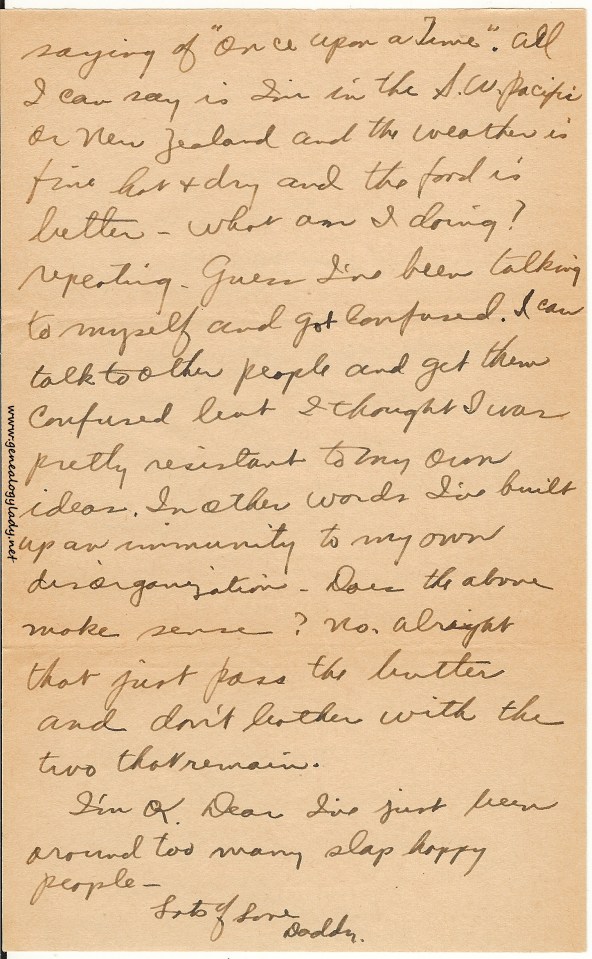 saying of "Once upon a Time". All
I can say is I'm in the S.W. Pacific
or New Zealand and the weather is
fine hot + dry and the food is
better - what am I doing?
repeating - Guess I've been talking
to myself and got confused. I can
talk to other people and get them
confused but I thought I was
pretty resistant to my own
ideas. In other words I've built
up an immunity to my own
disorganization - Does the above
make sense? No. alright
that just pass the butter
and don't bother with the
two that remain.
I'm OK. Dear I've just been
around too many slap happy
people -
Lots of Love
Daddy.
www.genealogylady.net